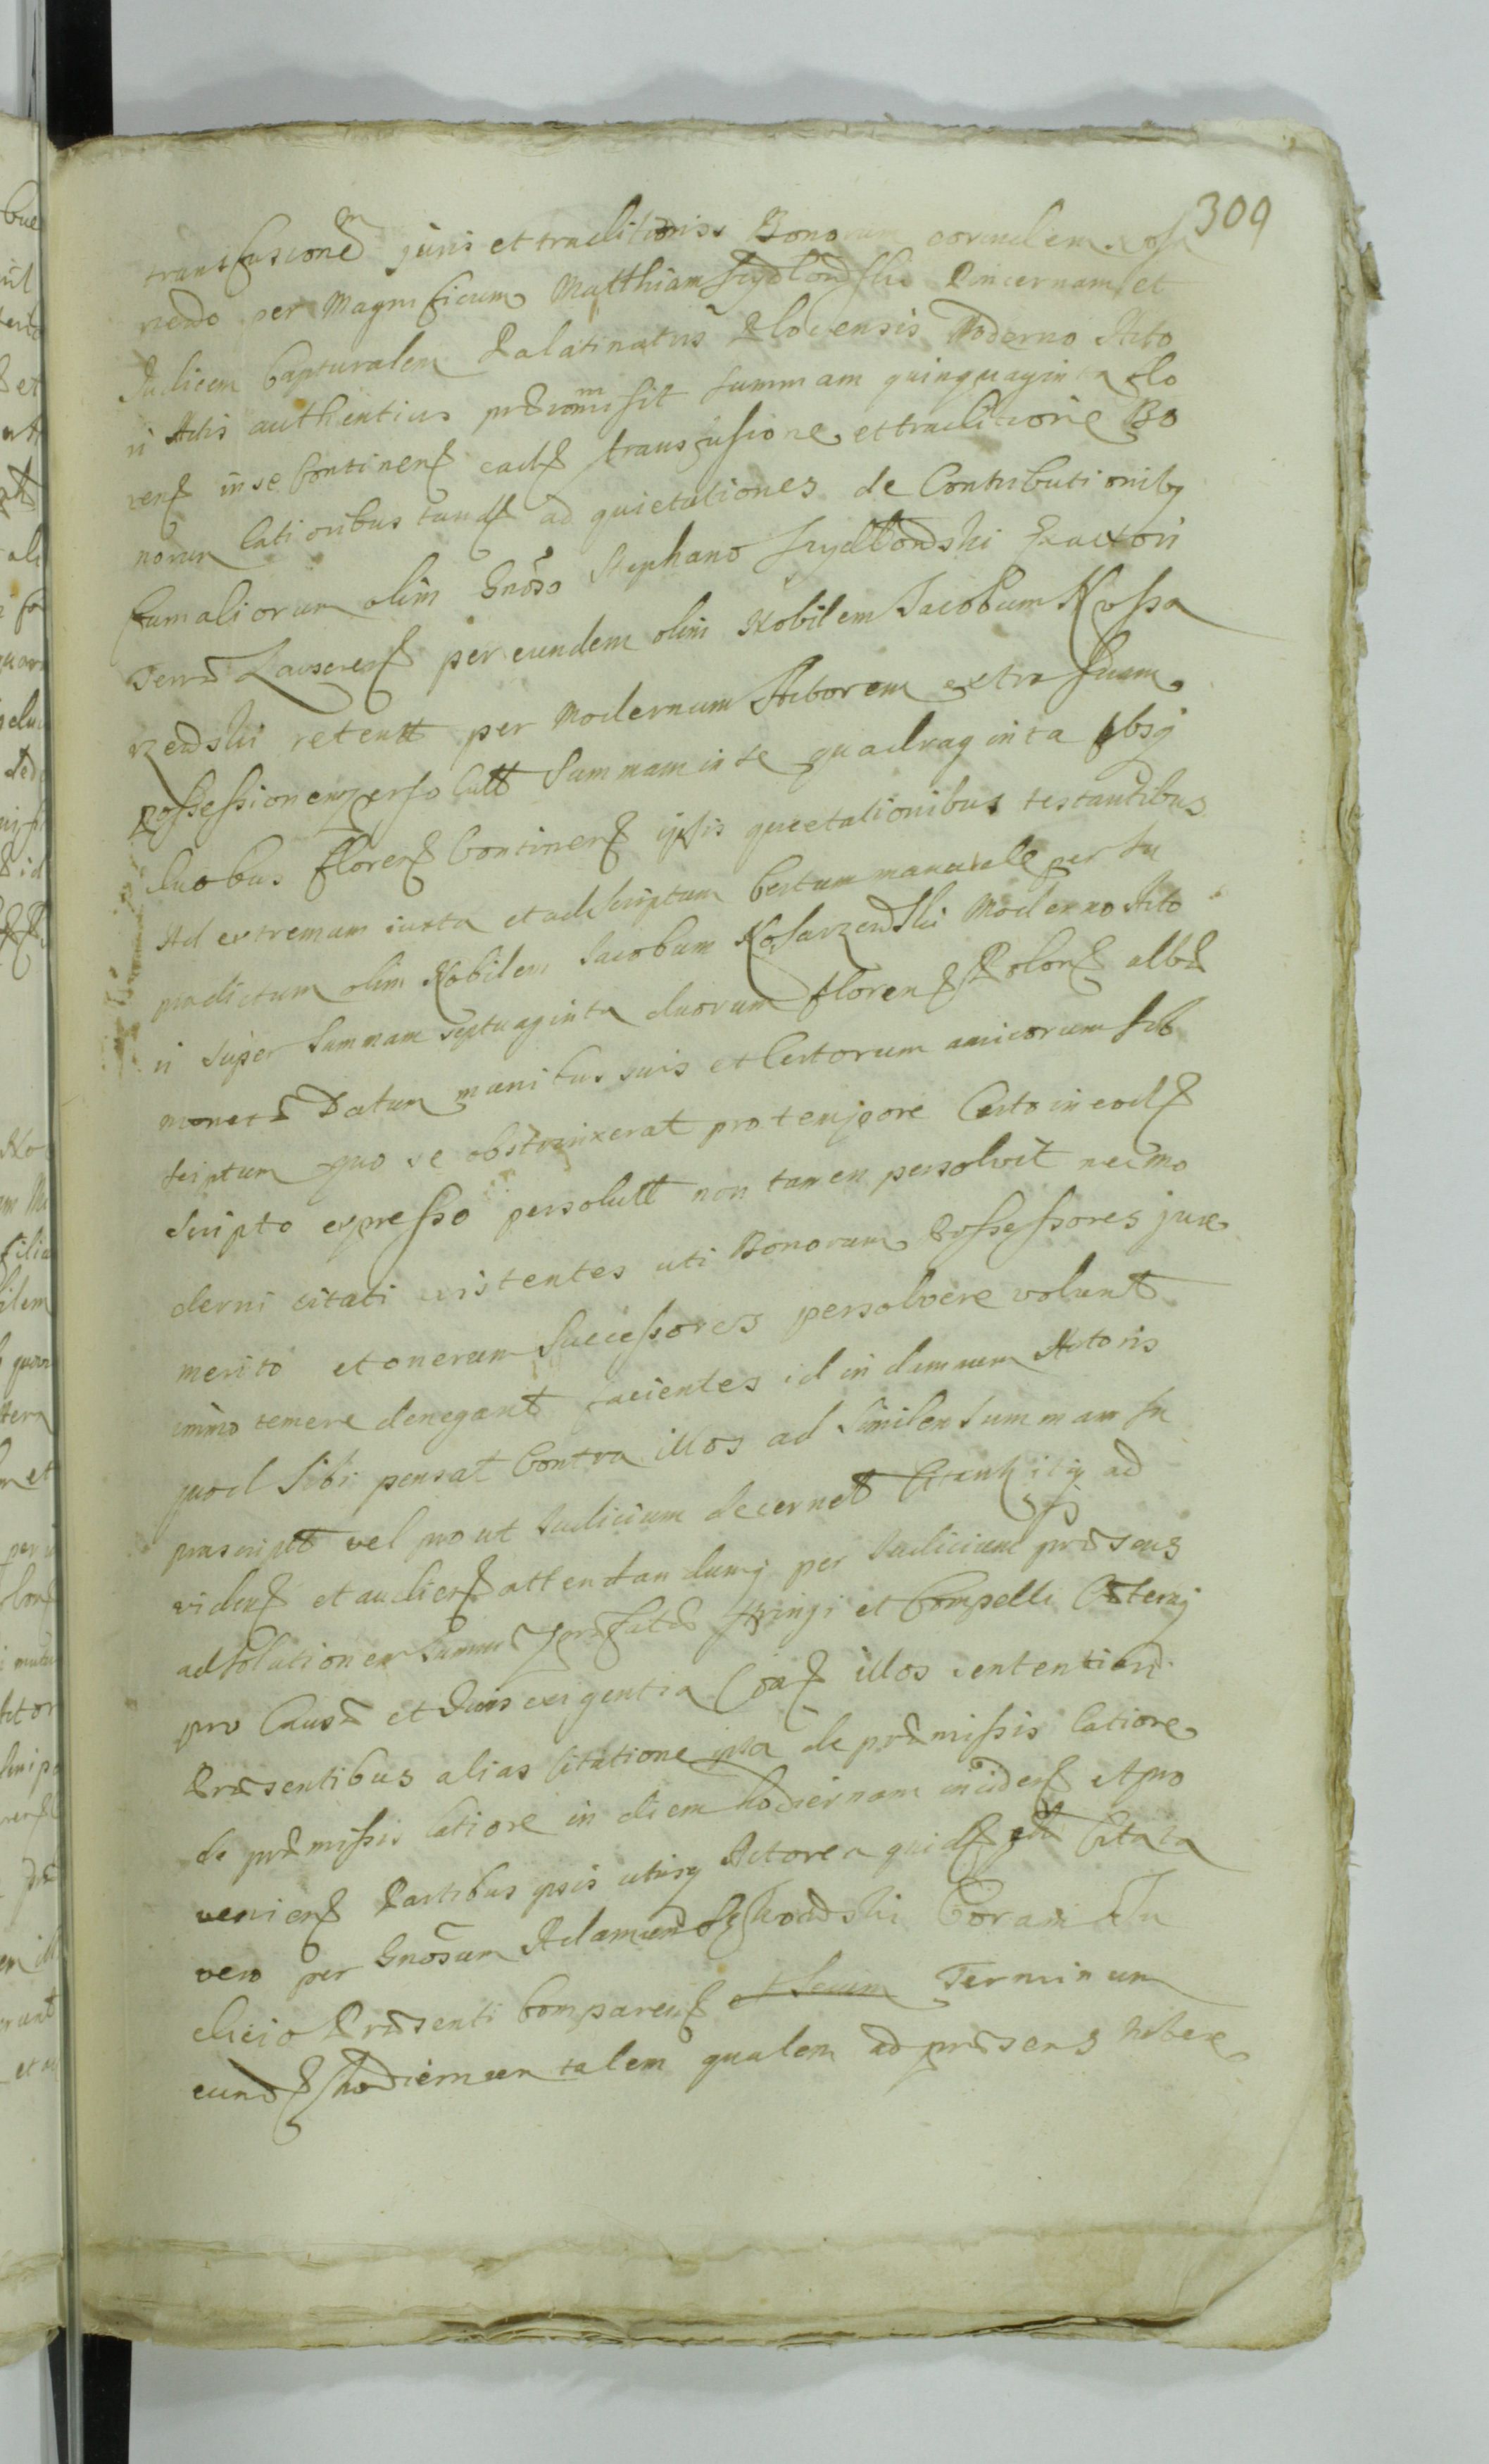 309
transfusionem juris et traditionis Bonorum eorundem
per Magnificum Matthiam Szydłowski Pincernam et
Judicem Capturalem Palatinatus Plocensis Moderno Acto
ri Actis authenticis promisit summam quinquaginta flo
renʒ in se Continenʒ eadʒ transfusione et traditione Bo
norum lationibus tandʒ ad quietationes de Contributionibꝫ
fumaliorum olim Gnoso Stephano Szydłowski Exactori
per eundem olim Nobilem Jacobum Kossa
rzewski retentt per Modernum Actorem extra suam
possessionem persolutt Summam in se quadraginta
duobus florenʒ Continenʒ ipsis quietationibus testantibus
Ad extremum iuxta et ad scriptum Certum manuale per su
pradictum olim Nobilem Jacobum Kosarzewski Moderno Acto
ri super Summam septuaginta duorum florenʒ Polonʒ albæ
monetæ Datum manibus suis et Certorum amicorum sub
scriptum quo se obstrinxerat pro tempore Certo in eodʒ
scripto expresso persolutt non tamen persolvit nec mo
derni citati existentes uti Bonorum Possessores jure
merito et onerum Successores persolvere volunt
immo temere denegant facientes id in damnum Actoris
quod sibi pensat Contra illos ad Similem Summam su
prascriptt vel prout Judicium decernet Citantʒ itꝫ ad
videnʒ et audienʒ attentandumq per Judicium præsens
ad solutionem Summæ præfatæ stringi et Compelli Cæteraq
pro Causæ et Juris exigentia Coaʒ illos sententiari
Præsentibus alias Citatione ipsa de præmissis latiore
de præmissis latiore in diem hodiernam incidenʒ et pro
venienʒ Partibus ipsis utrisq Actorea quidʒ Citata
vero per Gnosum Adamum Coram Ju
dicio Præsenti Comparenʒ Terminum
eundʒ hodiernum talem qualem ad præsens habere